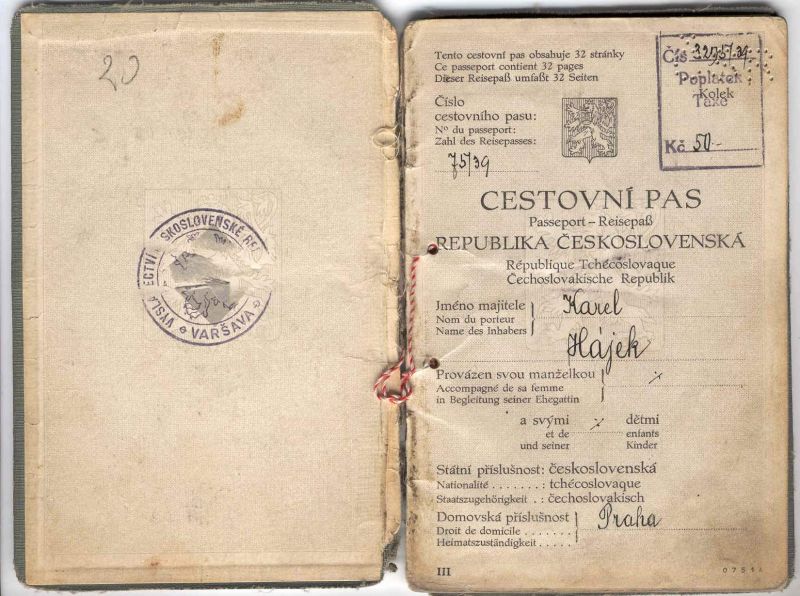 20
VYSLA ECTVÍ SKOSLOVENSKÉ RE
VARŠAVA
Tento cestovní pas obsahuje 32 stránky
Ce passeport contient 32 pages
Dieser Reisepaß umfaßt 32 Seiten
Čís 3275/39
Poplatek
Kolek
Taxe
Kč 50.-
Číslo
cestovního pasu:
Nº du passeport:
Zahl des Reisepasses:
75/39
CESTOVNÍ PAS
Passeport – Reisepaß
REPUBLIKA ČESKOSLOVENSKÁ
République Tchécoslovaque
Čechoslovakische Republik
Jméno majitele
Nom du porteur
Name des Inhabers
Karel
Hájek
Provázen svou manželkou
Accompagné de sa femme
in Begleitung seiner Ehegattin
a svými dětmi
et de enfants
und seiner Kinder
Státní příslušnost: československá
Nationalité . . . . . . . : tchécoslovaque
Staatszugehörigkeit . . : čechoslovakisch
Domovská příslušnost
Droit de domicile . . . . .
Heimatszuständigkeit . . . . .
Praha
III